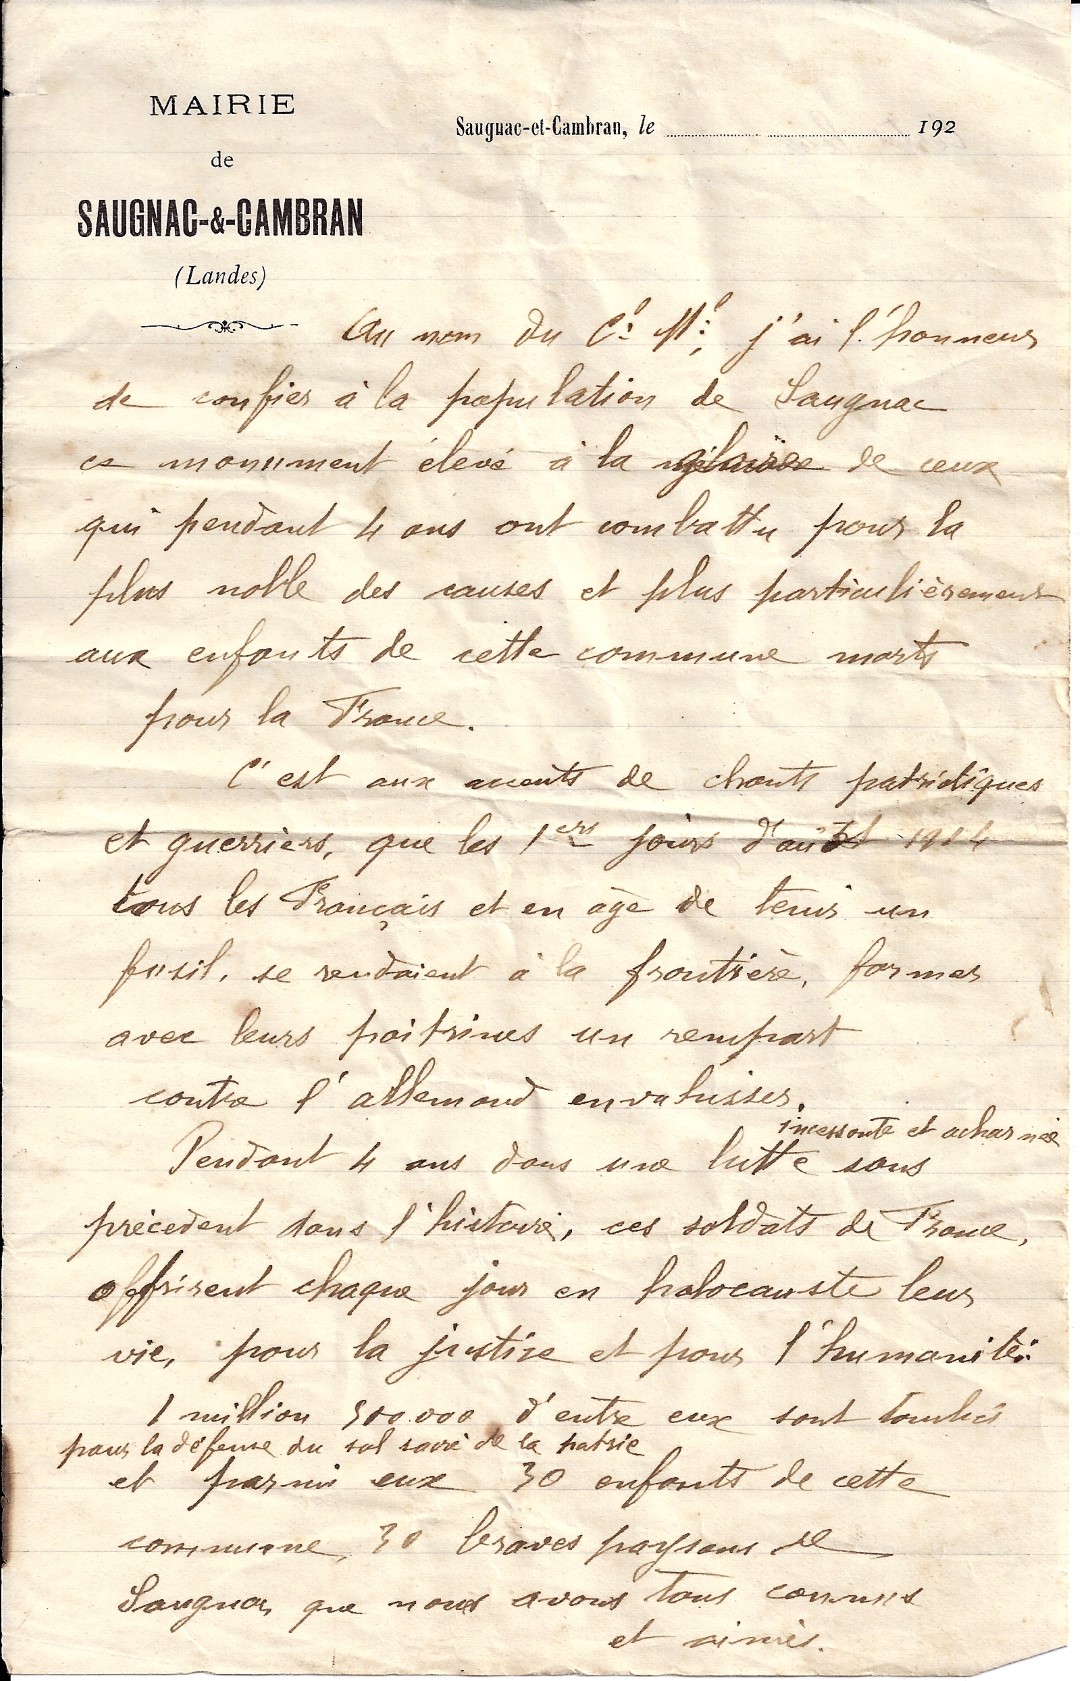 MAIRIE
de
SAUGNAC-&-CAMBRAN
(Landes)
Saugnac-et-Cambran, le 192
Au nom du C.l M.l, j'ai l'honneur
de confier à la population de Saugnac
ce monument élevé à la gloire de ceux
qui pendant 4 ans ont combattu pour la
plus noble des causes et plus particulièrement
aux enfants de cette commune morts
pour la France.
C'est aux accents de chants patriotiques
et guerriers, que les 1ers jours d'août 1914
tous les Français et en age de tenir un
fusil, se rendaient à la frontière, former
avec leurs poitrines un rempart
contre l'allemand envahisser.
incessante et acharnée
Pendant 4 ans dans une lutte sans
précedent dans l'histoire, ces soldats de France,
offrirent chaque jour en holocauste leur
vie, pour la justice et pour l'humanité.
1 million 500.000 d'entre eux sont tombés
pour la défense du sol sacré de la patrie
et parmi eux 30 enfants de cette
commune, 30 braves paysans de
Saugnac que nous avons tous connus
et aimés.